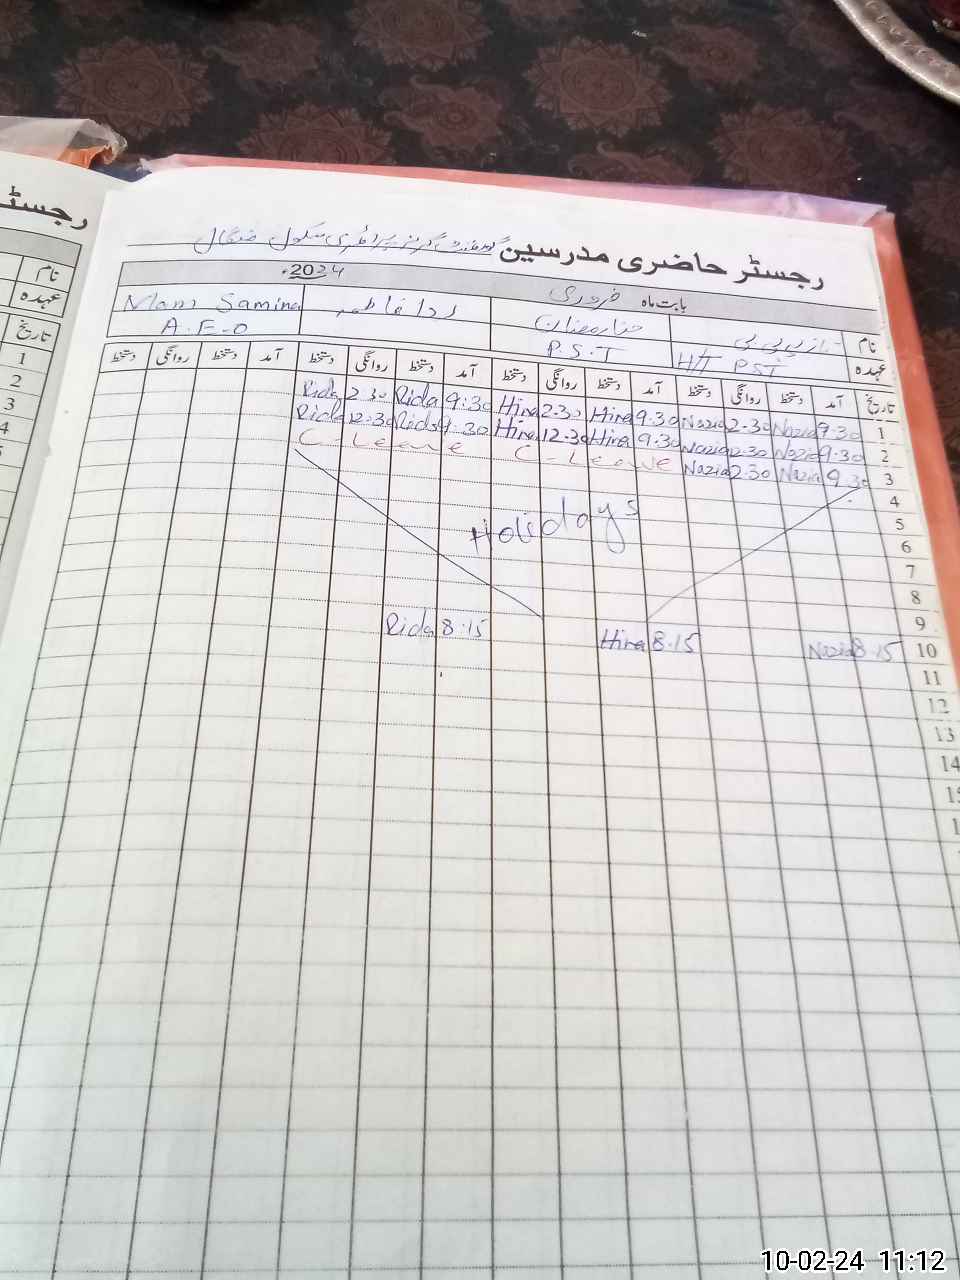 رجسٹر حاضری مدرسین گورنمنٹ گرلز پرائمری سکول
بابت ماہ فروری 2024ء
نام حنا رمضان ردا فاطمہ Mam Samina
عہدہ H/T PST P.S.T A.E.O
تاریخ آمد دستخط روانگی دستخط آمد دستخط روانگی دستخط آمد دستخط روانگی دستخط آمد دستخط روانگی دستخط
1 9:30 Nazia 2.30 Nazia 9.30 Hira 2.30 Hira 9:30 Rida 2.30 Rida
2 9.30 Nazia 12.30 Nazia 9.30 Hira 12.30 Hira 9.30 Rida 12.30 Rida
3 9.30 Nazia 2.30 Nazia C-Leave C-Leave
4
5 Holidays
6
7
8
9
10 8.15 Nazia 8.15 Hira 8.15 Rida
11
12
13
14
رجسٹ
نام
عہدہ
تاریخ
1
2
3
4
10-02-24 11:12